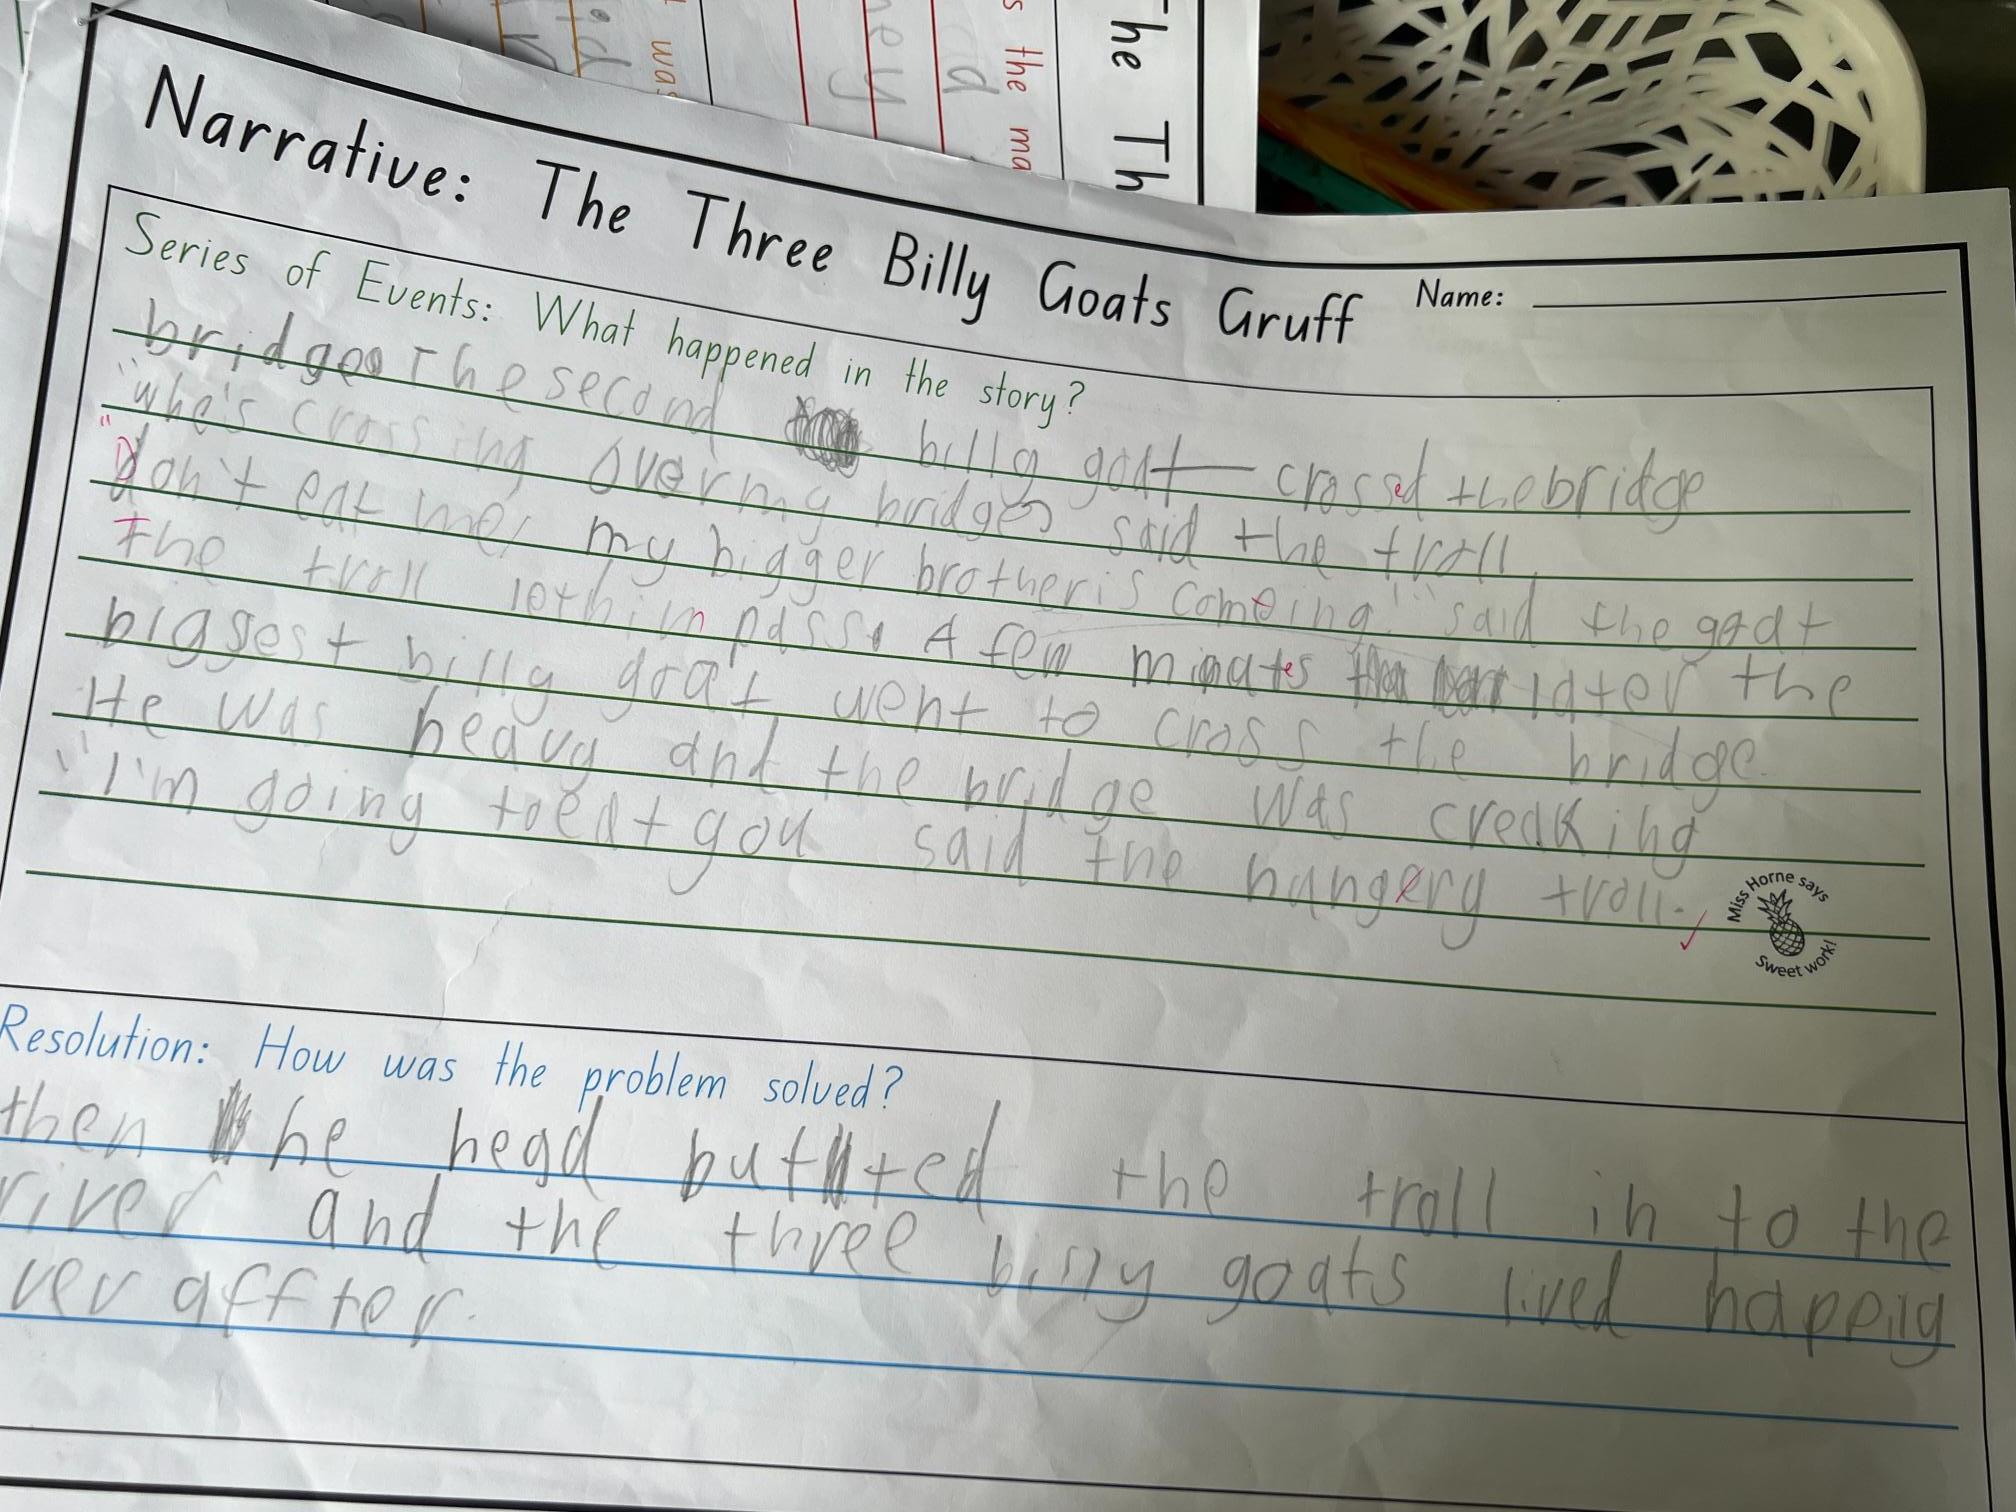 s the ma
The Th
was
ney
Narrative: The Three Billy Goats Gruff
Name:
Series of Events: What happened in the story?
bridge. The second billy goat crossed the bridge
"who's crossing over my bridge" said the troll.
"Don't eat me, my bigger brother is comeing!" said the goat
The troll let him pass. A few minates later the
biggest billy goat went to cross the bridge.
He was heavy and the bridge was creaking
"I'm going to eat you said the hungery troll.
Miss Horne says
Sweet work!
Resolution: How was the problem solved?
then he head butted the troll in to the
river and the three billy goats lived happily
ver affter.